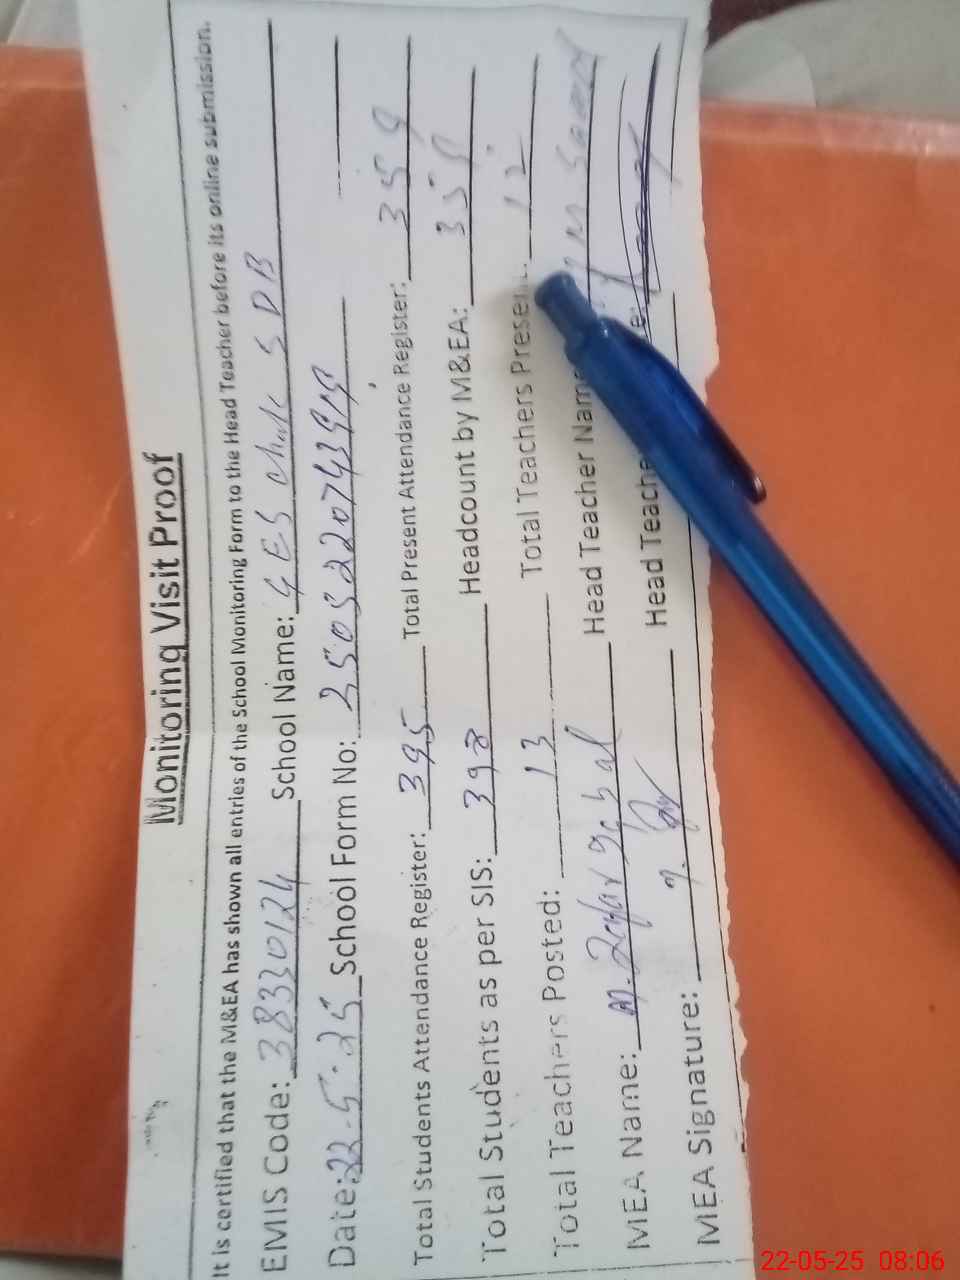 Monitoring Visit Proof
It is certified that the M&EA has shown all entries of the School Monitoring Form to the Head Teacher before its online submission.
EMIS Code: 38330124 School Name: GES Chak 5 DB
Date: 22-5-25 School Form No:
Total Students Attendance Register: 395 Total Present Attendance Register: 359
Total Students as per SIS: 398 Headcount by M&EA: 359
Total Teachers Posted: 13 Total Teachers Present: 12
MEA Name: M. Zafar Iqbal Head Teacher Name
MEA Signature: Head Teache e:
22-05-25 08:06